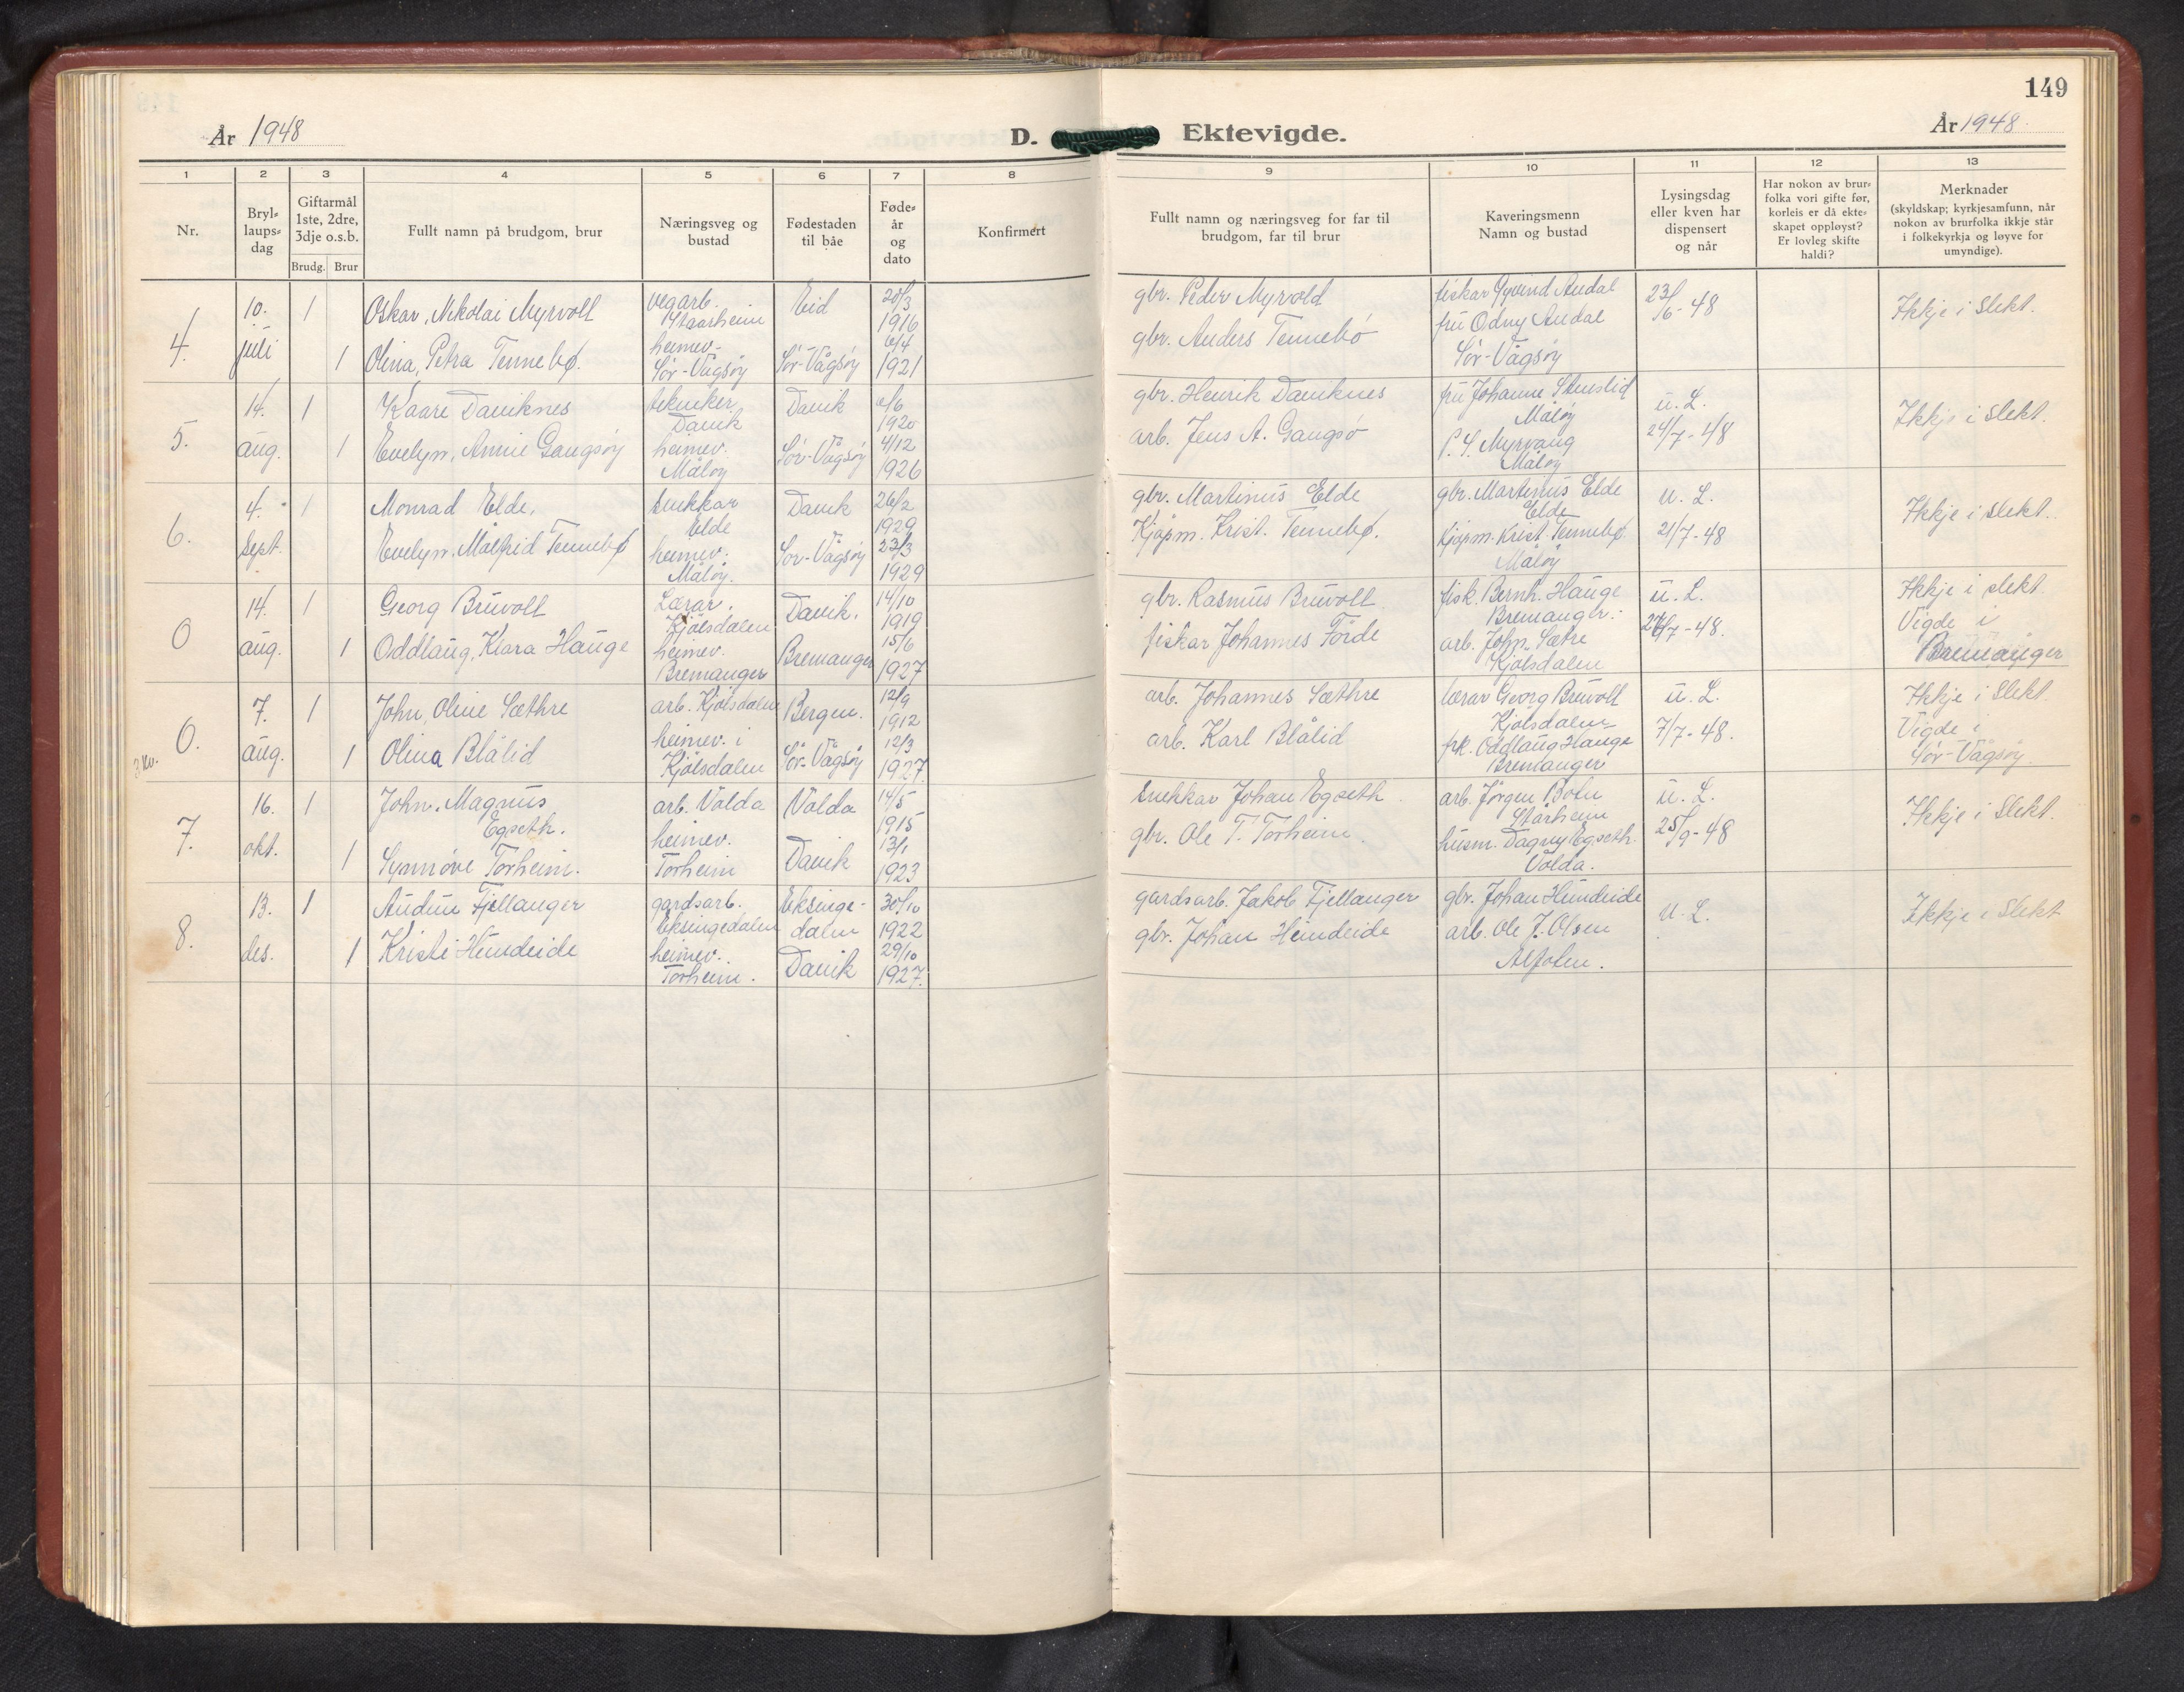 149
År 1948
D. Ektevigde.
År 1948.
1 2 3 4 5 6 7 8 9 10 11 12 13
Nr.
Bryl-
laups-
dag
Giftarmål
1ste, 2dre,
3dje o.s.b.
Brudg. Brur
Fullt namn på brudgom, brur
Næringsveg og
bustad
Fødestaden
til båe
Føde-
år
og
dato
Konfirmert
Fullt namn og næringsveg for far til
brudgom, far til brur
Kaveringsmenn
Namn og bustad
Lysingsdag
eller kven har
dispensert
og når
Har nokon av brur-
folka vori gifte før,
korleis er då ekte-
skapet oppløyst?
Er lovleg skifte
haldi?
Merknader
(skyldskap; kyrkjesamfunn, når
nokon av brurfolka ikkje står
i folkekyrkja og løyve for
umyndige).
4.
10.
juli
1
Oskar, Nikolai Myrvoll
vegarb.
Staarheim
Eid
20/3
1916
1
Olina, Petra Tennebø.
heimev.
Sör-Vågsöy
Sör-Vågsöy
6/4
1921
gbr. Peder Myrvold
gbr. Anders Tennebö
fiskar Öyvind Audal
fru Odny Audal
Sör-Vågsöy
23/6-48
Ikkje i slekt.
5.
14.
aug.
1
Kaare Daviknes
tekniker
Davik
Davik
1920
1
Evelyn, Annie Gangsöy
heimev.
Måløy
Sör-Vågsöy
4/12
1926
gbr. Henrik Daviknes
arb. Jens A. Gangsö
fru Johanne
Måløy
Myrvang
Måløy
u. L.
24/7-48
Ikkje i slekt.
6.
4.
sept.
1
Monrad Elde.
snekkar
Elde
Davik
26/2
1929
Evelyn, Målfrid Tennebø
heimev.
Måløy.
Sör-Vågsöy
23/3
1929
gbr. Martinus Elde
Kjøpm. Krist. Tennebø.
gbr. Martinus Elde
Elde
Kjøpm. Krist. Tennebø.
Måløy
u. L.
21/7-48
Ikkje i slekt.
0
14.
aug.
1
Georg Bruvoll
Lærar.
Kjölsdalen
Davik.
14/10
1919
1
Oddlaug, Klara Hauge
heimev.
Bremanger
Bremanger
15/6
1927
gbr. Rasmus Bruvoll
fiskar Johannes Förde
fisk. Bernh. Hauge
Bremanger.
arb. John Sætre
Kjölsdalen
u. L.
Ikkje i slekt
Vigde i
Bremanger
3 kv.
0.
7.
aug.
1
John, Oline Sæthre
arb. Kjölsdalen
Bergen.
12/9
1912
1
Olina Blålid
heimev. i
Kjölsdalen
Sör-Vågsöy
12/3
1927.
arb. Johannes Sæthre
arb. Karl Blålid
lærar Georg Bruvoll
Kjölsdalen
frk. Oddlaug Hauge
Bremanger
u. L.
7/7-48.
Ikkje i slekt.
Vigde i
Sör-Vågsöy.
7.
16.
okt.
1
John, Magnus
Egseth.
arb. Volda
Volda
14/5
1915
1
Synnöve Torheim.
heimev.
Torheim
Davik
13/1
1923
Snekkar Johan Egseth
gbr. Ole T. Torheim.
arb. Jörgen Botn
Stårheim
husm. Dagny Egseth.
Volda.
u. L.
25/9-48
Ikkje i slekt.
8.
13.
des.
1
Audun Fjellanger
gardsarb.
Eksingedalen
Eksinge-
dalen
30/10
1922
1
Kristi Hundeide
heimev.
Torheim.
Davik
29/10
1927.
gardsarb. Jakob Fjellanger
gbr. Johan Hundeide
gbr. Johan Hundeide
arb. Ole J. Olsen
Ålfoten.
u. L.
Ikkje i slekt